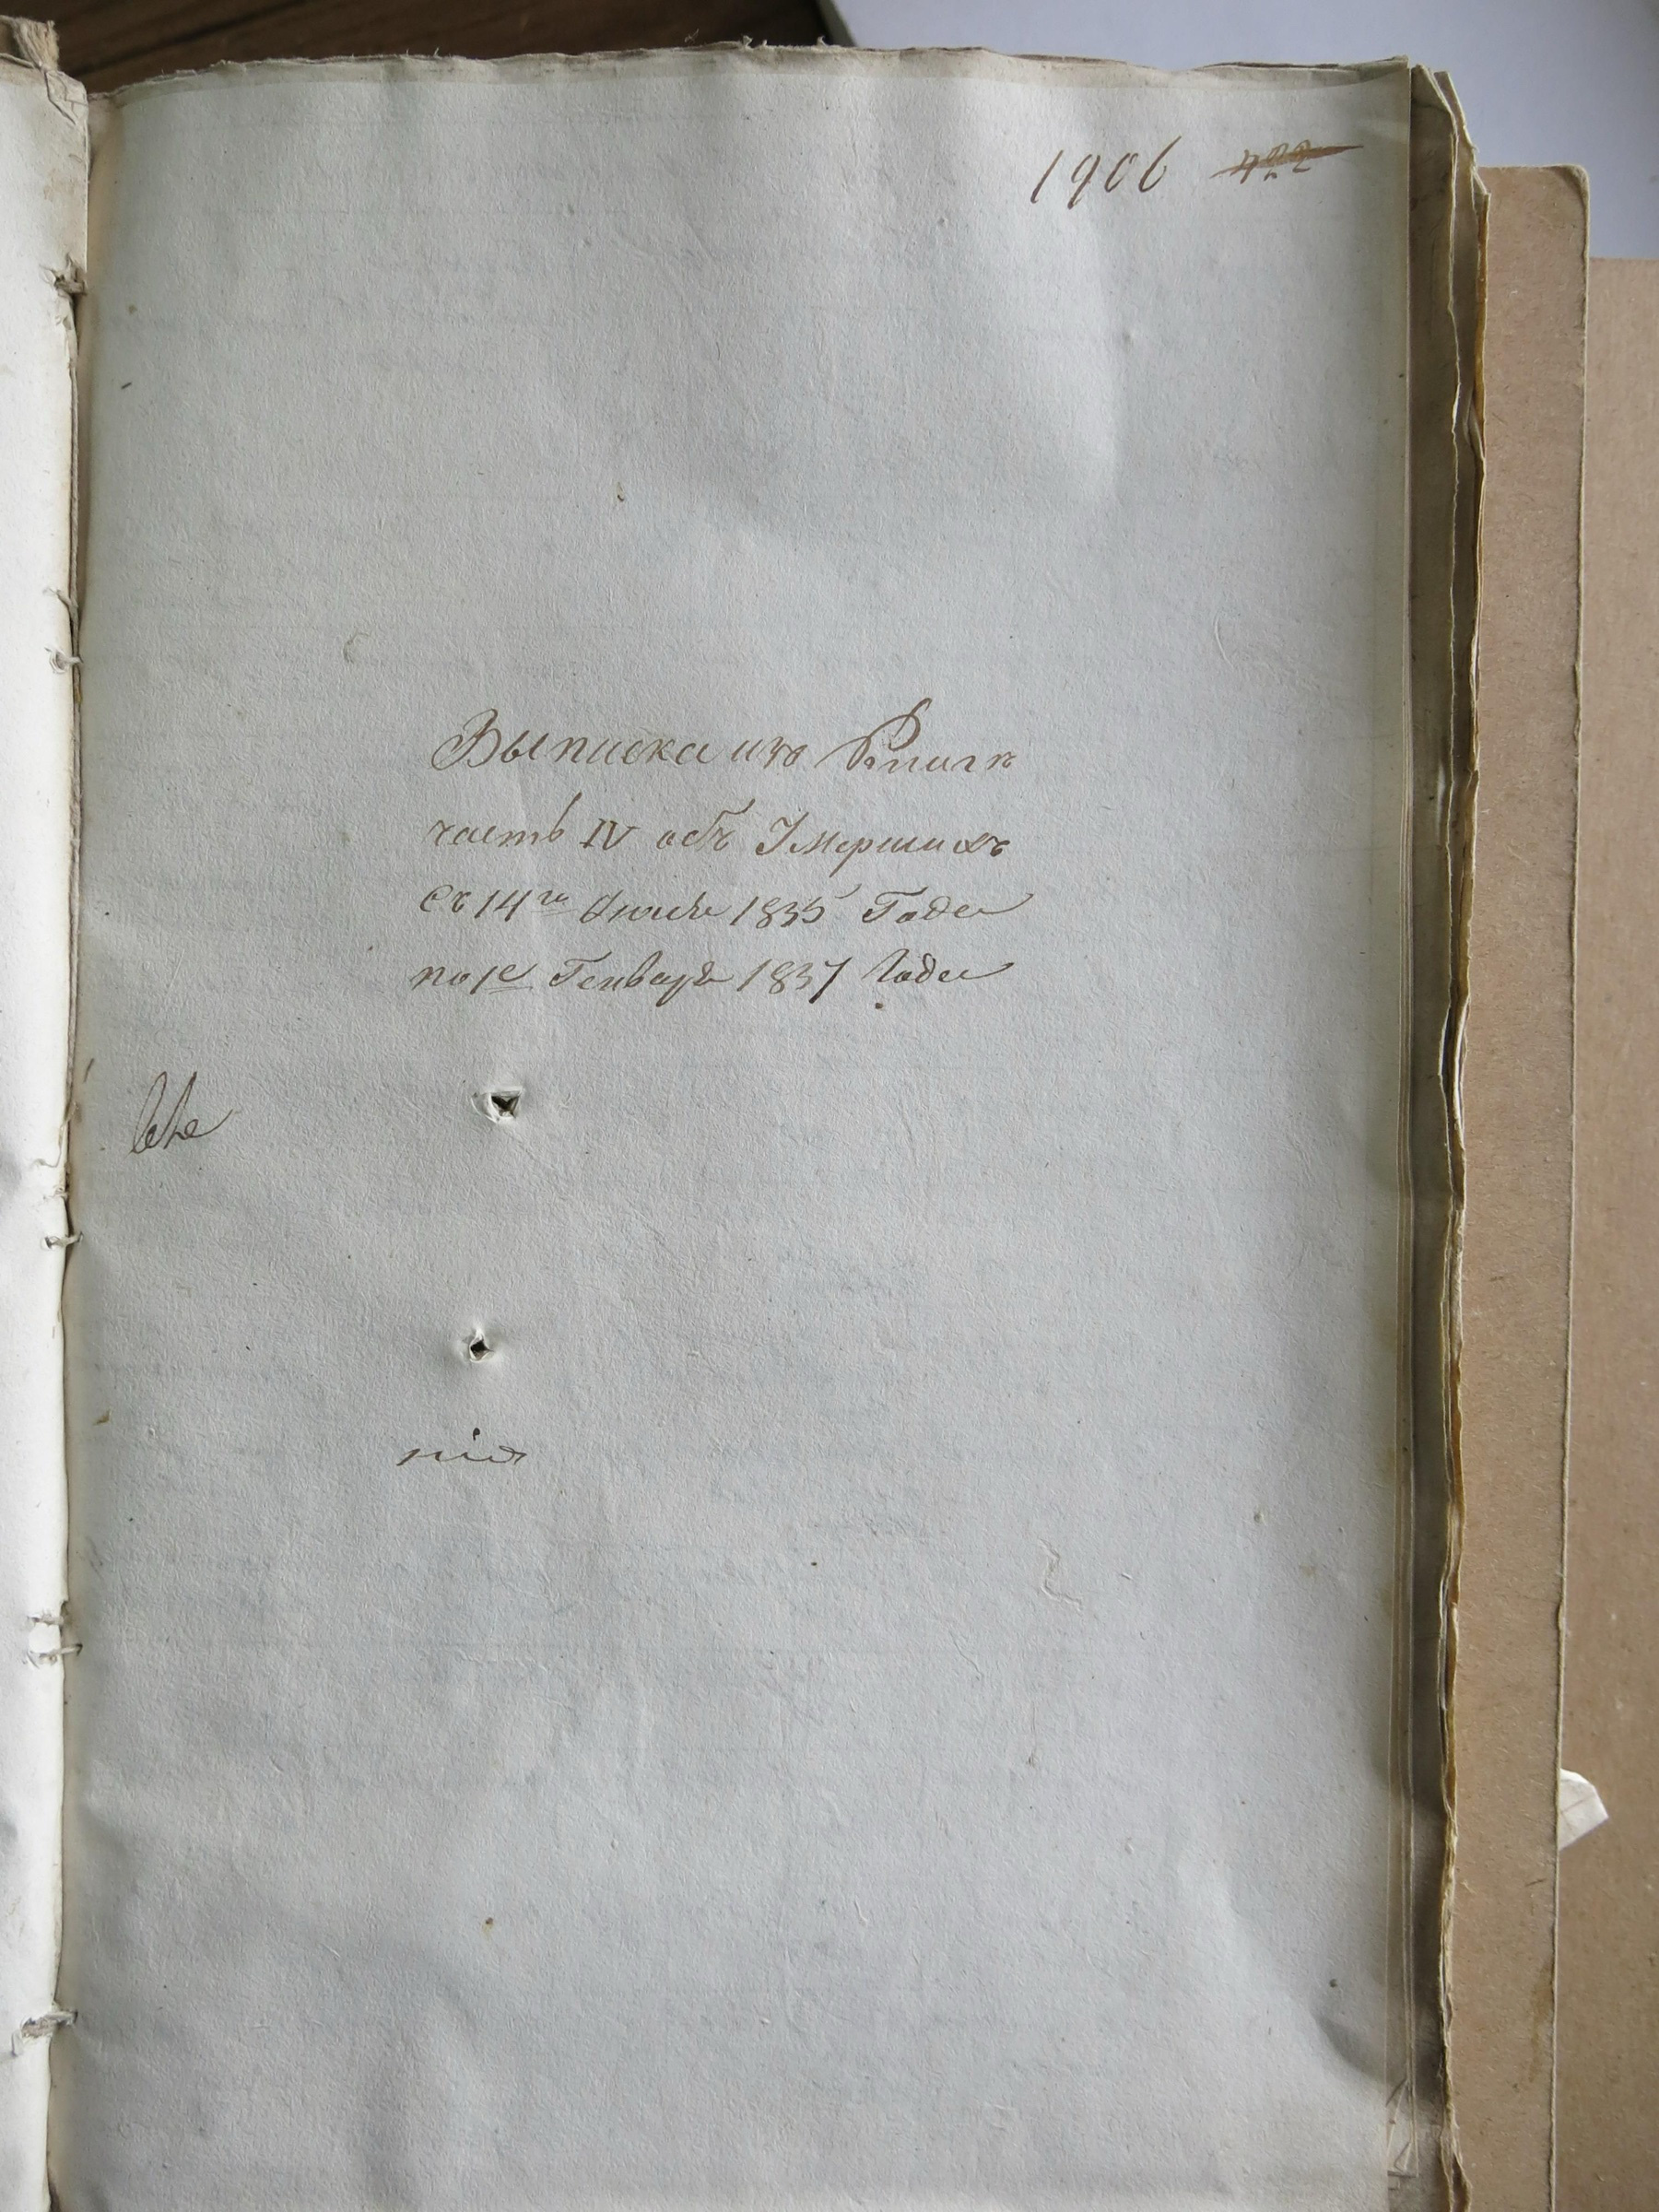 1906 422
Выписка изъ Книгъ
часть IV объ Умершихъ
съ 14го Іюня 1835 Года
по 1е Генваря 1837 Года
нія